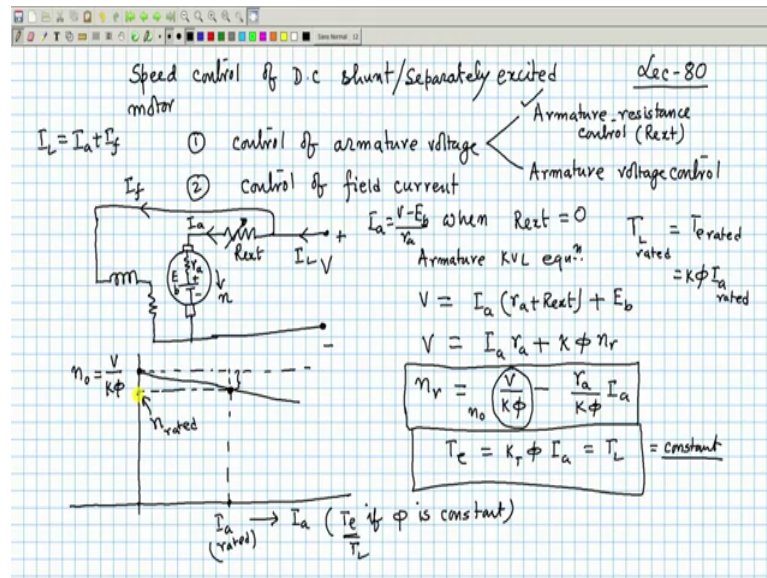 Speed control of D.C shunt/separately excited motor
Lec-80
I_L = I_a + I_f
① control of armature voltage
Armature-resistance control (Rext)
Armature voltage control
② control of field current
I_f
I_a
Rext
I_L
V
+
E_b
r_a
+
-
n
-
I_a = V-E_b/r_a when Rext = 0
T_L rated = T_e rated
= Kφ I_a rated
Armature KVL equn:
V = I_a (r_a + Rext) + E_b
V = I_a r_a + K φ n_r
n_r = n_0 V/Kφ - r_a/Kφ I_a
T_e = K_T φ I_a = T_L = constant
n_0 = V/Kφ
n_rated
I_a (rated) → I_a (T_e/T_L if φ is constant)
Sans Normal 12